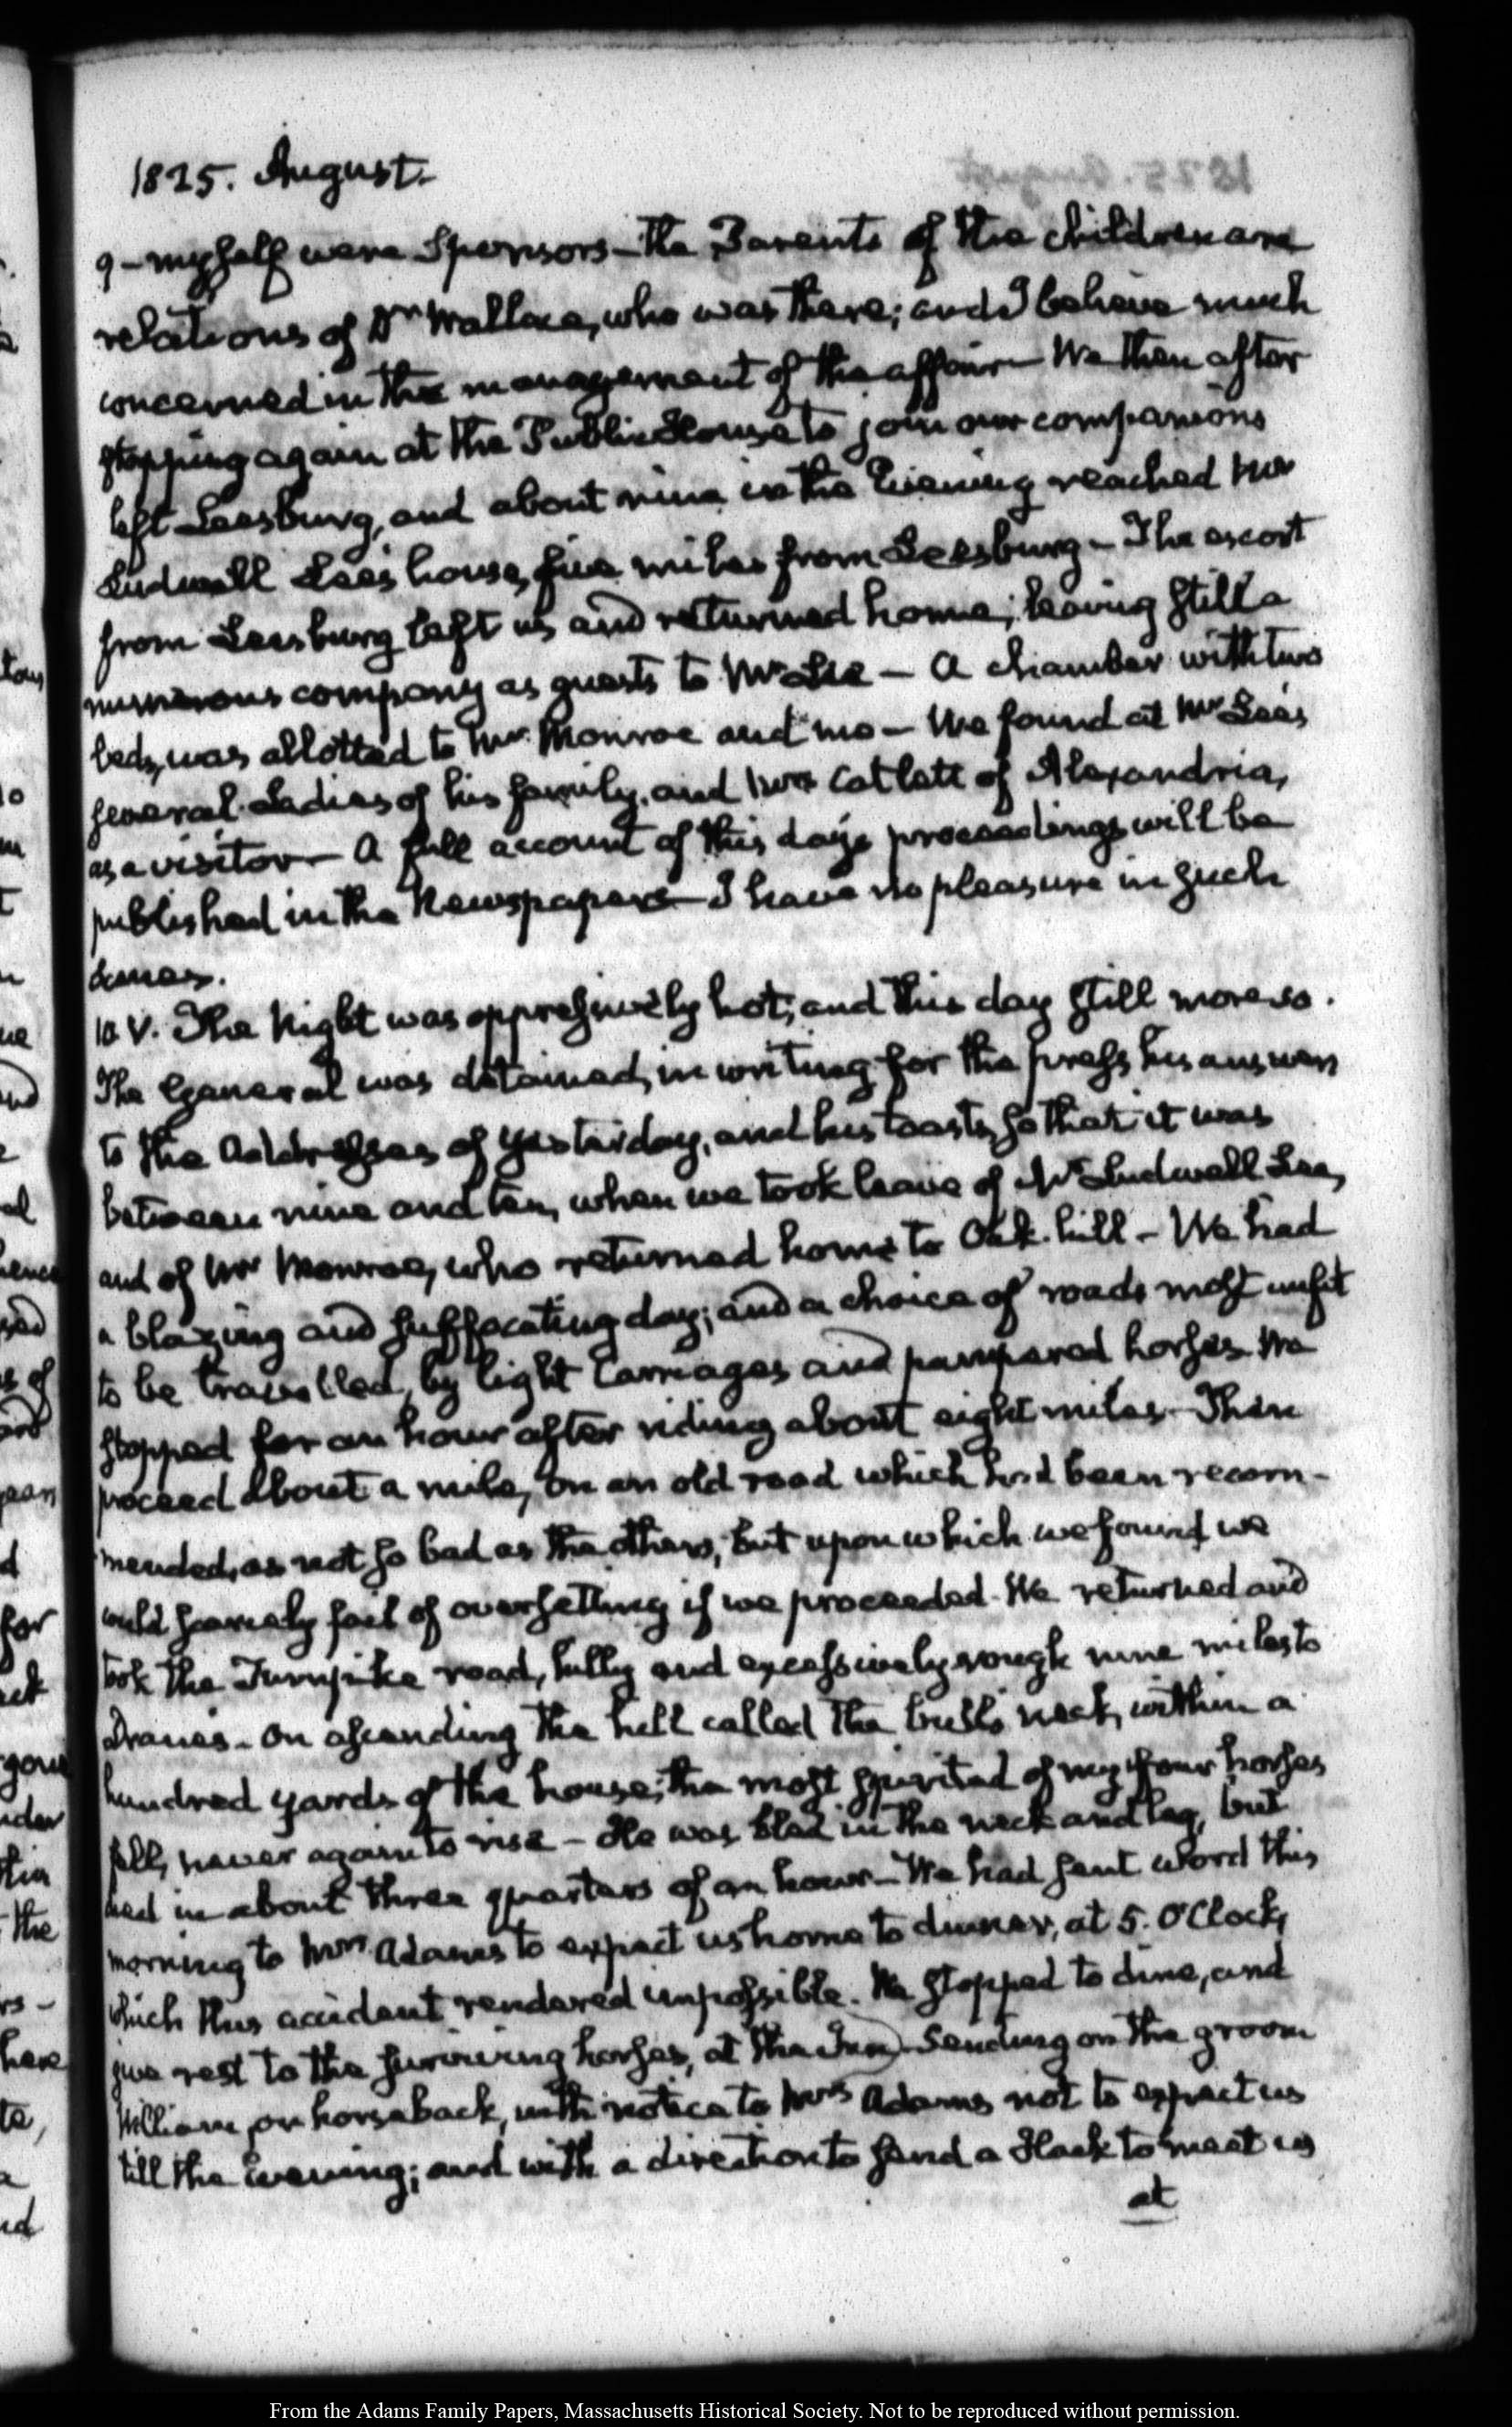 1825. August.
9 - myself were Sponsors - The Parents of the children are
relations of Dr. Wallace, who was there; and I believe much
concerned in the management of the affair - We then after
stopping again at the Public House to join our companions
left Leesburg, and about nine in the Evening reached Mr
Ludwell Lee's house, five miles from Leesburg - The escort
from Leesburg left us and returned home; leaving still a
numerous company as guests to Mr Lee - A chamber with two
beds, was allotted to Mr. Monroe and me - We found at Mr Lee's
several Ladies of his family, and Mrs Catlett of Alexandria,
as a visitor - A full account of this day's proceedings will be
published in the Newspapers - I have no pleasure in such
scenes.
10. V. The Night was oppressively hot; and this day still more so.
The General was detained, in writing for the press his answers
to the Addresses of yesterday, and his toasts, so that it was
between nine and ten, when we took leave of Mr Ludwell Lee,
and of Mr Monroe, who returned home to Oak-hill - We had
a blazing and suffocating day; and a choice of roads most unfit
to be travelled, by light Carriages and pampered horses. We
stopped for an hour after riding about eight miles - Then
proceed about a mile, on an old road which had been recom-
mended, as not so bad as the others, but upon which we found we
could scarcely fail of oversetting if we proceeded. We returned and
took the Turnpike road, hilly and excessively rough nine miles to
Dranes - On ascending the hill called the bull's neck, within a
hundred yards of the house, the most spirited of my four horses
fell, never again to rise - He was bled in the neck and leg, but
died in about three quarters of an hour - We had sent word this
morning to Mrs Adams to expect us home to dinner, at 5. O'Clock,
which this accident rendered impossible. We stopped to dine, and
give rest to the surviving horses, at the Inn - Sending on the groom
William, on horseback, with notice to Mrs Adams not to expect us
till the Evening; and with a direction to send a Hack to meet us
at
From the Adams Family Papers, Massachusetts Historical Society. Not to be reproduced without permission.